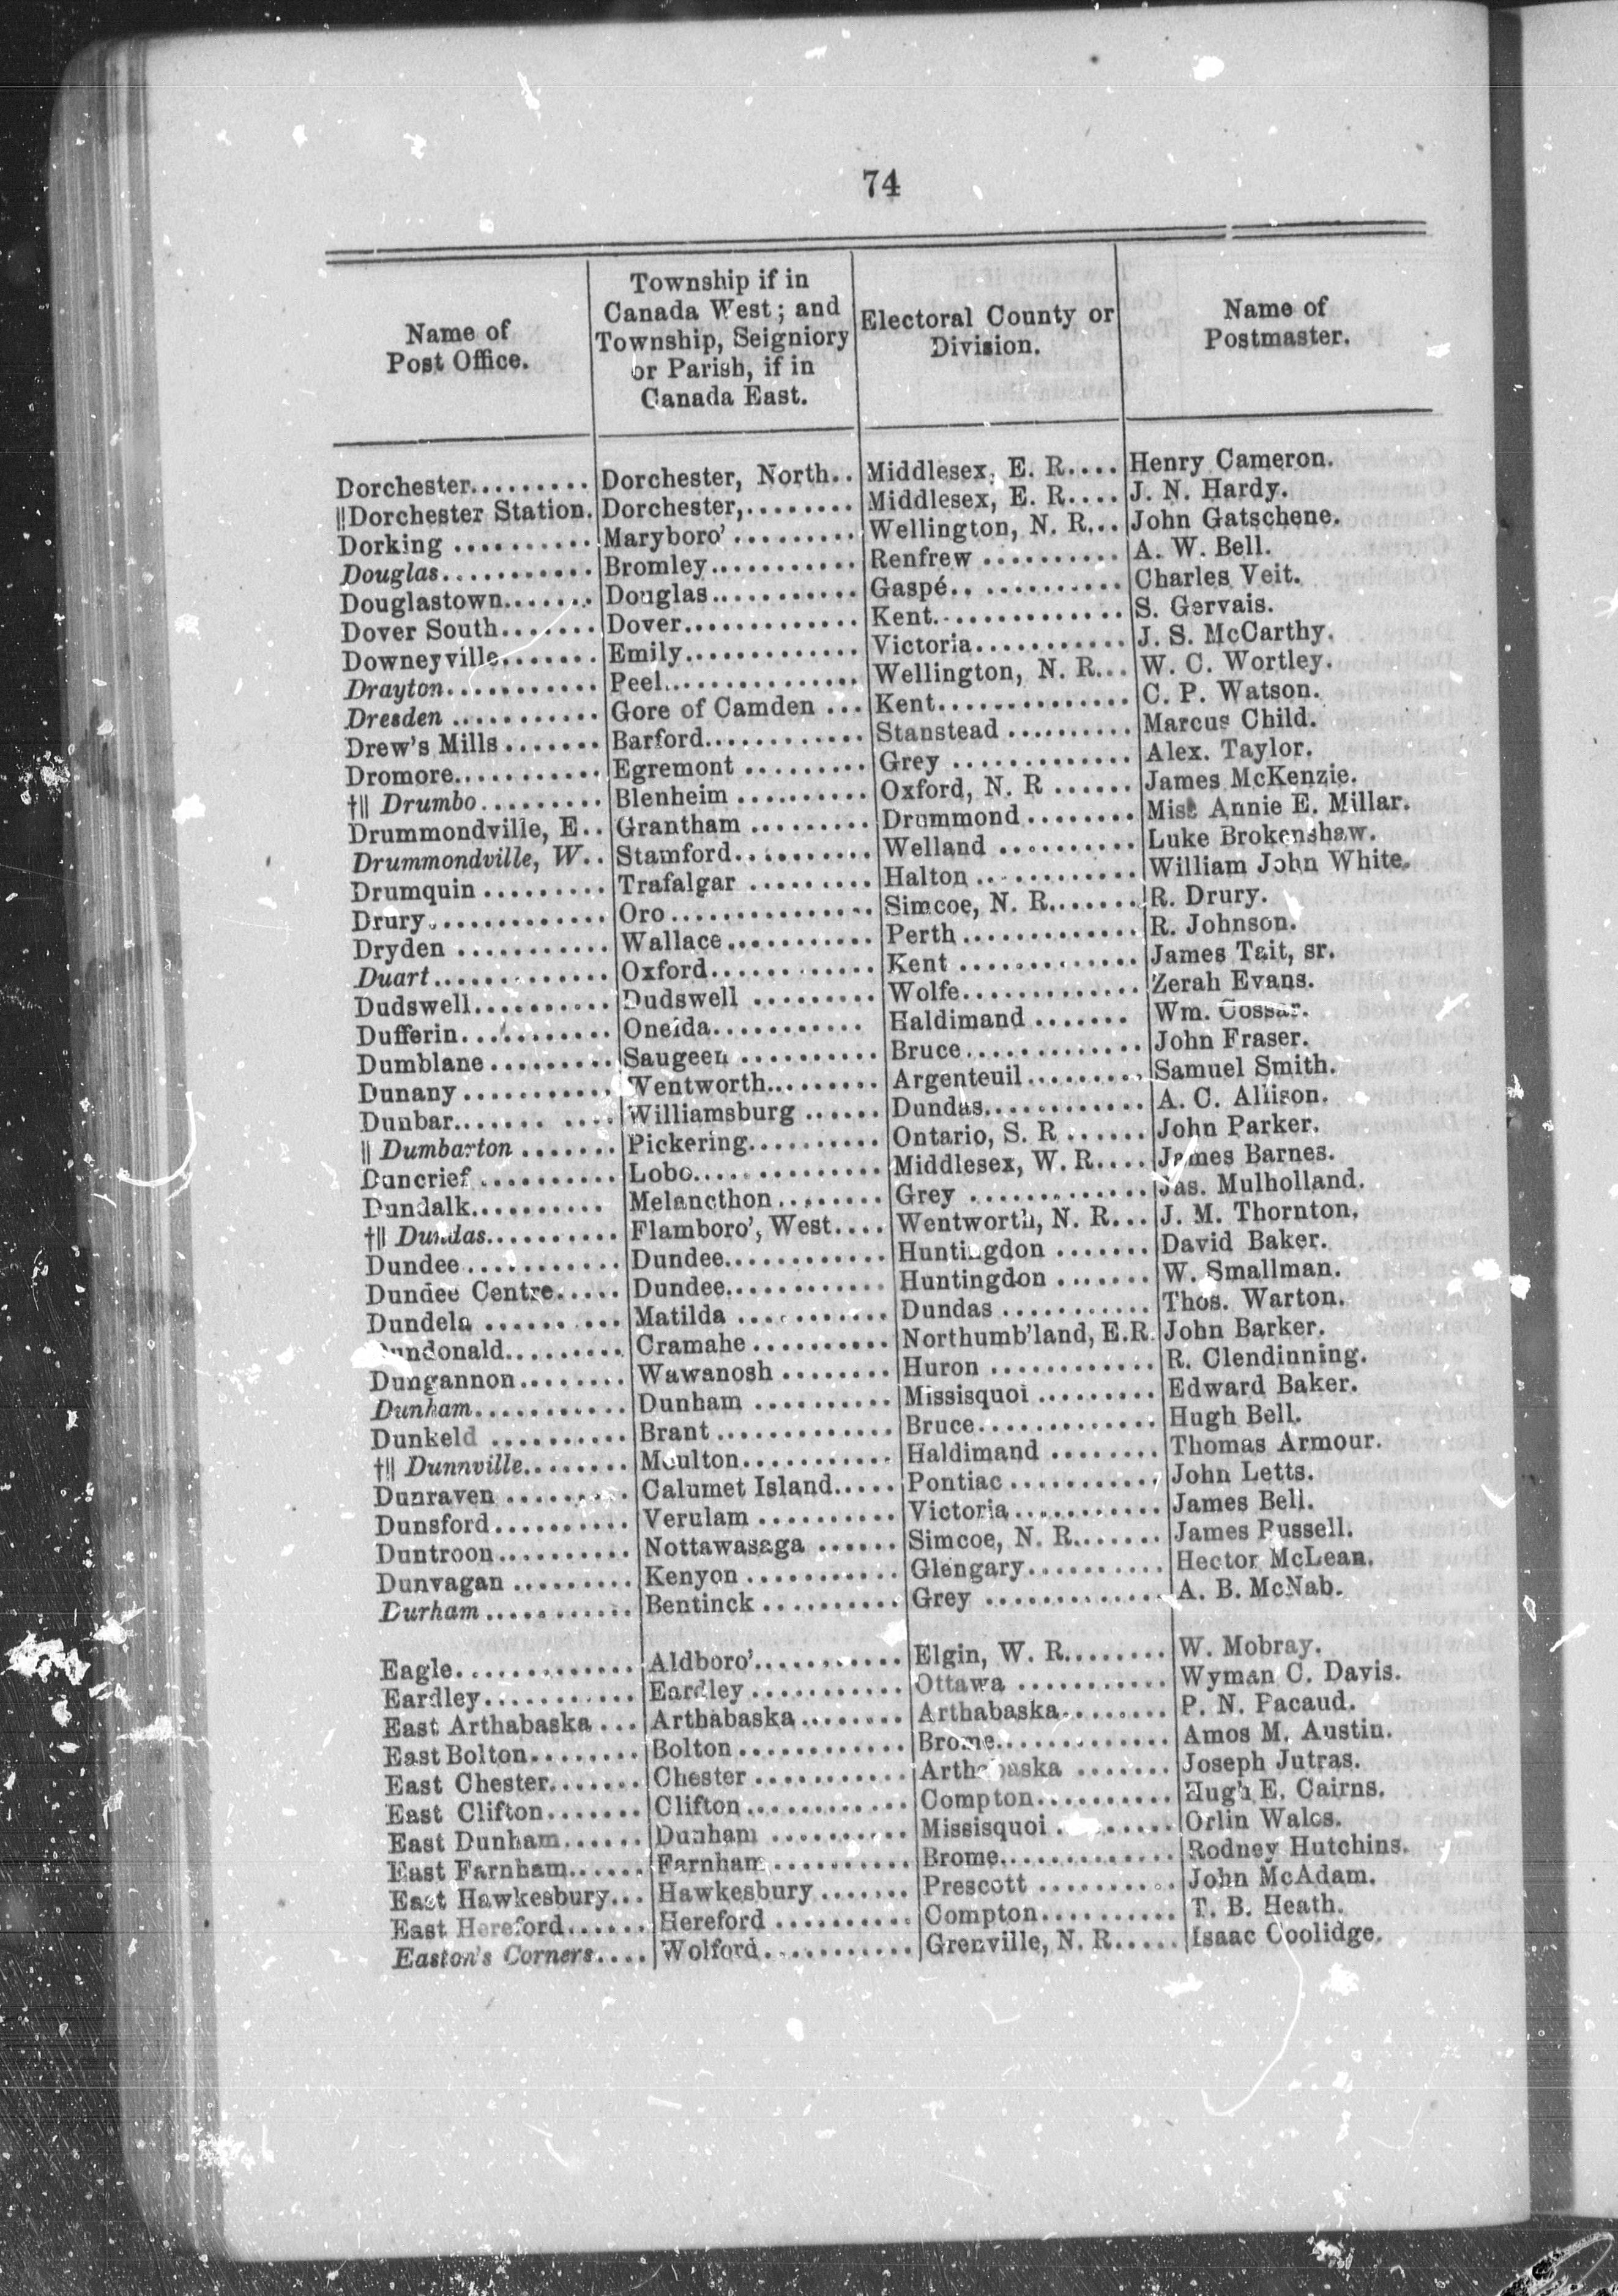 74
Name of Post Office. | Township if in Canada West; and Township, Seigniory or Parish, if in Canada East. | Electoral County or Division. | Name of Postmaster.
Dorchester......... | Dorchester, North.. | Middlesex, E. R.... | Henry Cameron.
||Dorchester Station. | Dorchester,........ | Middlesex, E. R.... | J. N. Hardy.
Dorking .......... | Maryboro' ......... | Wellington, N. R... | John Gatschene.
Douglas........... | Bromley........... | Renfrew .......... | A. W. Bell.
Douglastown....... | Douglas........... | Gaspé............ | Charles Veit.
Dover South....... | Dover............. | Kent.............. | S. Gervais.
Downeyville....... | Emily............. | Victoria........... | J. S. McCarthy.
Drayton........... | Peel............... | Wellington, N. R... | W. C. Wortley.
Dresden ........... | Gore of Camden ... | Kent.............. | C. P. Watson.
Drew's Mills ....... | Barford............ | Stanstead .......... | Marcus Child.
Dromore........... | Egremont ......... | Grey ............. | Alex. Taylor.
†|| Drumbo......... | Blenheim .......... | Oxford, N. R ...... | James McKenzie.
Drummondville, E.. | Grantham ......... | Drummond........ | Miss Annie E. Millar.
Drummondville, W.. | Stamford.......... | Welland .......... | Luke Brokenshaw.
Drumquin ......... | Trafalgar ......... | Halton ............ | William John White.
Drury............. | Oro ............... | Simcoe, N. R....... | R. Drury.
Dryden ........... | Wallace........... | Perth ............. | R. Johnson.
Duart............. | Oxford............ | Kent ............. | James Tait, sr.
Dudswell.......... | Dudswell ......... | Wolfe............. | Zerah Evans.
Dufferin........... | Oneida............ | Haldimand ....... | Wm. Cossar.
Dumblane ......... | Saugeen .......... | Bruce............. | John Fraser.
Dunany ........... | Wentworth......... | Argenteuil......... | Samuel Smith.
Dunbar........... | Williamsburg ...... | Dundas............ | A. C. Allison.
|| Dumbarton ....... | Pickering.......... | Ontario, S. R ...... | John Parker.
Duncrief .......... | Lobo.............. | Middlesex, W. R.... | James Barnes.
Dundalk.......... | Melancthon........ | Grey ............. | Jas. Mulholland.
†|| Dundas.......... | Flamboro', West.... | Wentworth, N. R... | J. M. Thornton.
Dundee ........... | Dundee............ | Huntingdon ....... | David Baker.
Dundee Centre..... | Dundee............ | Huntingdon ....... | W. Smallman.
Dundela .......... | Matilda ........... | Dundas ........... | Thos. Warton.
Dundonald......... | Cramahe .......... | Northumb'land, E.R. | John Barker.
Dungannon........ | Wawanosh ........ | Huron ............ | R. Clendinning.
Dunham........... | Dunham .......... | Missisquoi ......... | Edward Baker.
Dunkeld .......... | Brant ............. | Bruce............. | Hugh Bell.
†|| Dunnville........ | Moulton........... | Haldimand ........ | Thomas Armour.
Dunraven ......... | Calumet Island..... | Pontiac ........... | John Letts.
Dunsford.......... | Verulam .......... | Victoria........... | James Bell.
Duntroon.......... | Nottawasaga ...... | Simcoe, N. R....... | James Russell.
Dunvagan ......... | Kenyon ........... | Glengary.......... | Hector McLean.
Durham ........... | Bentinck .......... | Grey ............. | A. B. McNab.
Eagle............. | Aldboro'........... | Elgin, W. R........ | W. Mobray.
Eardley........... | Eardley ........... | Ottawa ........... | Wyman C. Davis.
East Arthabaska ... | Arthabaska........ | Arthabaska........ | P. N. Pacaud.
East Bolton........ | Bolton ............ | Brome............. | Amos M. Austin.
East Chester....... | Chester ........... | Arthabaska ....... | Joseph Jutras.
East Clifton....... | Clifton............ | Compton.......... | Hugh E. Cairns.
East Dunham...... | Dunham .......... | Missisquoi ........ | Orlin Wales.
East Farnham...... | Farnham.......... | Brome............. | Rodney Hutchins.
East Hawkesbury... | Hawkesbury....... | Prescott .......... | John McAdam.
East Hereford...... | Hereford .......... | Compton.......... | T. B. Heath.
Easton's Corners.... | Wolford........... | Grenville, N. R..... | Isaac Coolidge.